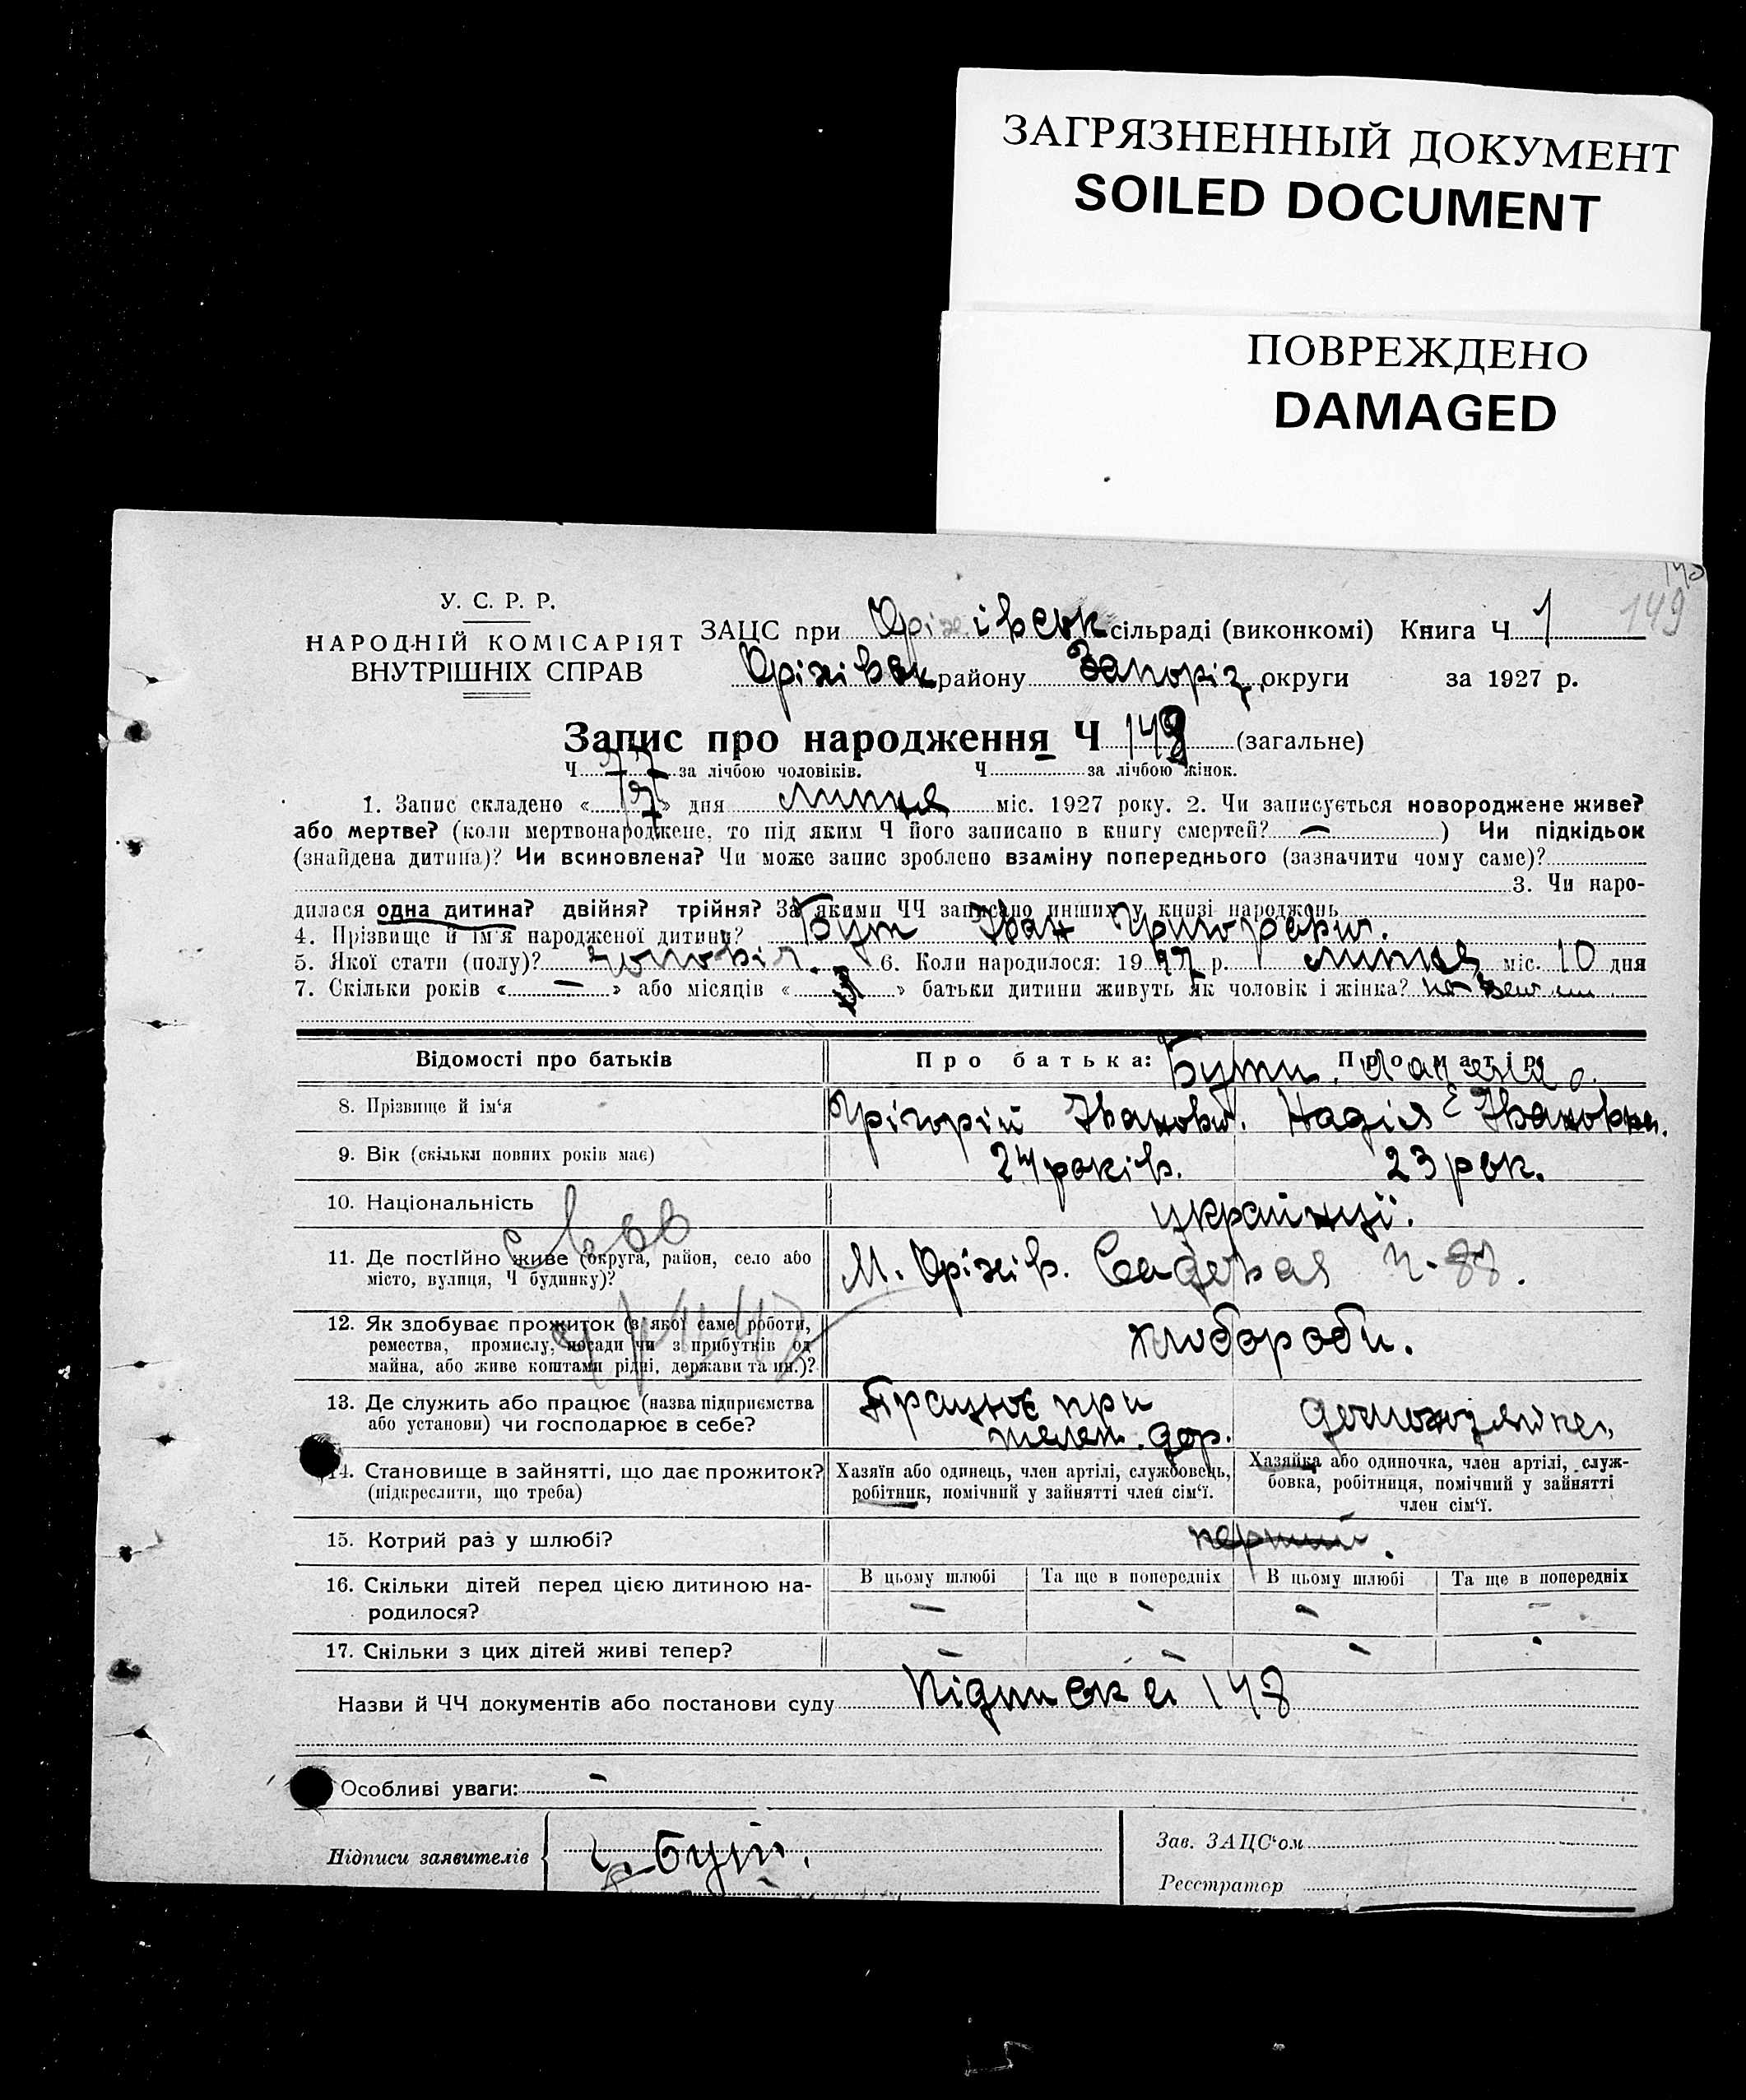 ЗАГРЯЗНЕННЫЙ ДОКУМЕНТ
SOILED DOCUMENT
ПОВРЕЖДЕНО
DAMAGED
149
У. С. Р. Р.
НАРОДНІЙ КОМІСАРІЯТ
ВНУТРІШНІХ СПРАВ
ЗАЦС при Оріхівськ сільраді (виконкомі) Книга Ч. 1
Оріхівськ району Запоріз. округи за 1927 р.
Запис про народження Ч 148 (загальне)
Ч. 77 за лічбою чоловіків. Ч. за лічбою жінок.
1. Запис складено « » дня липня міс. 1927 року. 2. Чи записується новороджене живе?
або мертве? (коли мертвонароджене, то під яким Ч його записано в книгу смертей? — ) Чи підкідьок
(знайдена дитина)? Чи всиновлена? Чи може запис зроблено взаміну попереднього (зазначити чому саме)?
3. Чи наро-
дилася одна дитина? двійня? трійня? За якими ЧЧ записано инших у книзі народжень
4. Прізвище й ім'я народженої дитини? Бут Іван Григорєвич.
5. Якої стати (полу)? чоловіч. 6. Коли народилося: 19 27 р. липня міс. 10 дня
7. Скільки років « — » або місяців « » батьки дитини живуть як чоловік і жінка?
Відомості про батьків
Про батька: Про матір:
Бути
8. Прізвище й ім'я
Грігорій Іванович. Надія Івановна.
9. Вік (скільки повних років має)
24 років. 23 рок.
10. Національність
українці.
11. Де постійно живе (округа, район, село або
місто, вулиця, Ч будинку)?
М. Оріхів. Садовая
12. Як здобуває прожиток (з якої саме роботи,
ремества, промислу, посади чи з прибутків од
майна, або живе коштами рідні, держави та ин.)?
хлібороби.
13. Де служить або працює (назва підприємства
або установи) чи господарює в себе?
Працює при
дор.
домохозяйка
14. Становище в зайнятті, що дає прожиток?
(підкреслити, що треба)
Хазяїн або одинець, член артілі, службовець,
робітник, помічний у зайнятті член сім'ї.
Хазяйка або одиночка, член артілі, служ-
бовка, робітниця, помічний у зайнятті
член сім'ї.
15. Котрий раз у шлюбі?
перший.
16. Скільки дітей перед цією дитиною на-
родилося?
В цьому шлюбі Та ще в попередніх В цьому шлюбі Та ще в попередніх
— - - -
17. Скільки з цих дітей живі тепер?
- - - -
Назви й ЧЧ документів або постанови суду 148
Особливі уваги: -
Підписи заявителів
Бут.
Зав. ЗАЦС'ом
Реєстратор